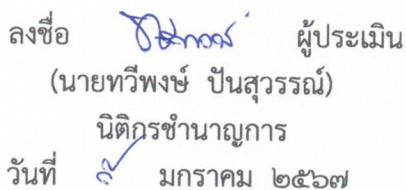 ลงชื่อ ผู้ประเมิน
(นายทวีพงษ์ ปันสุวรรณ์)
นิติกรชำนาญการ
วันที่ มกราคม ๒๕๖๗